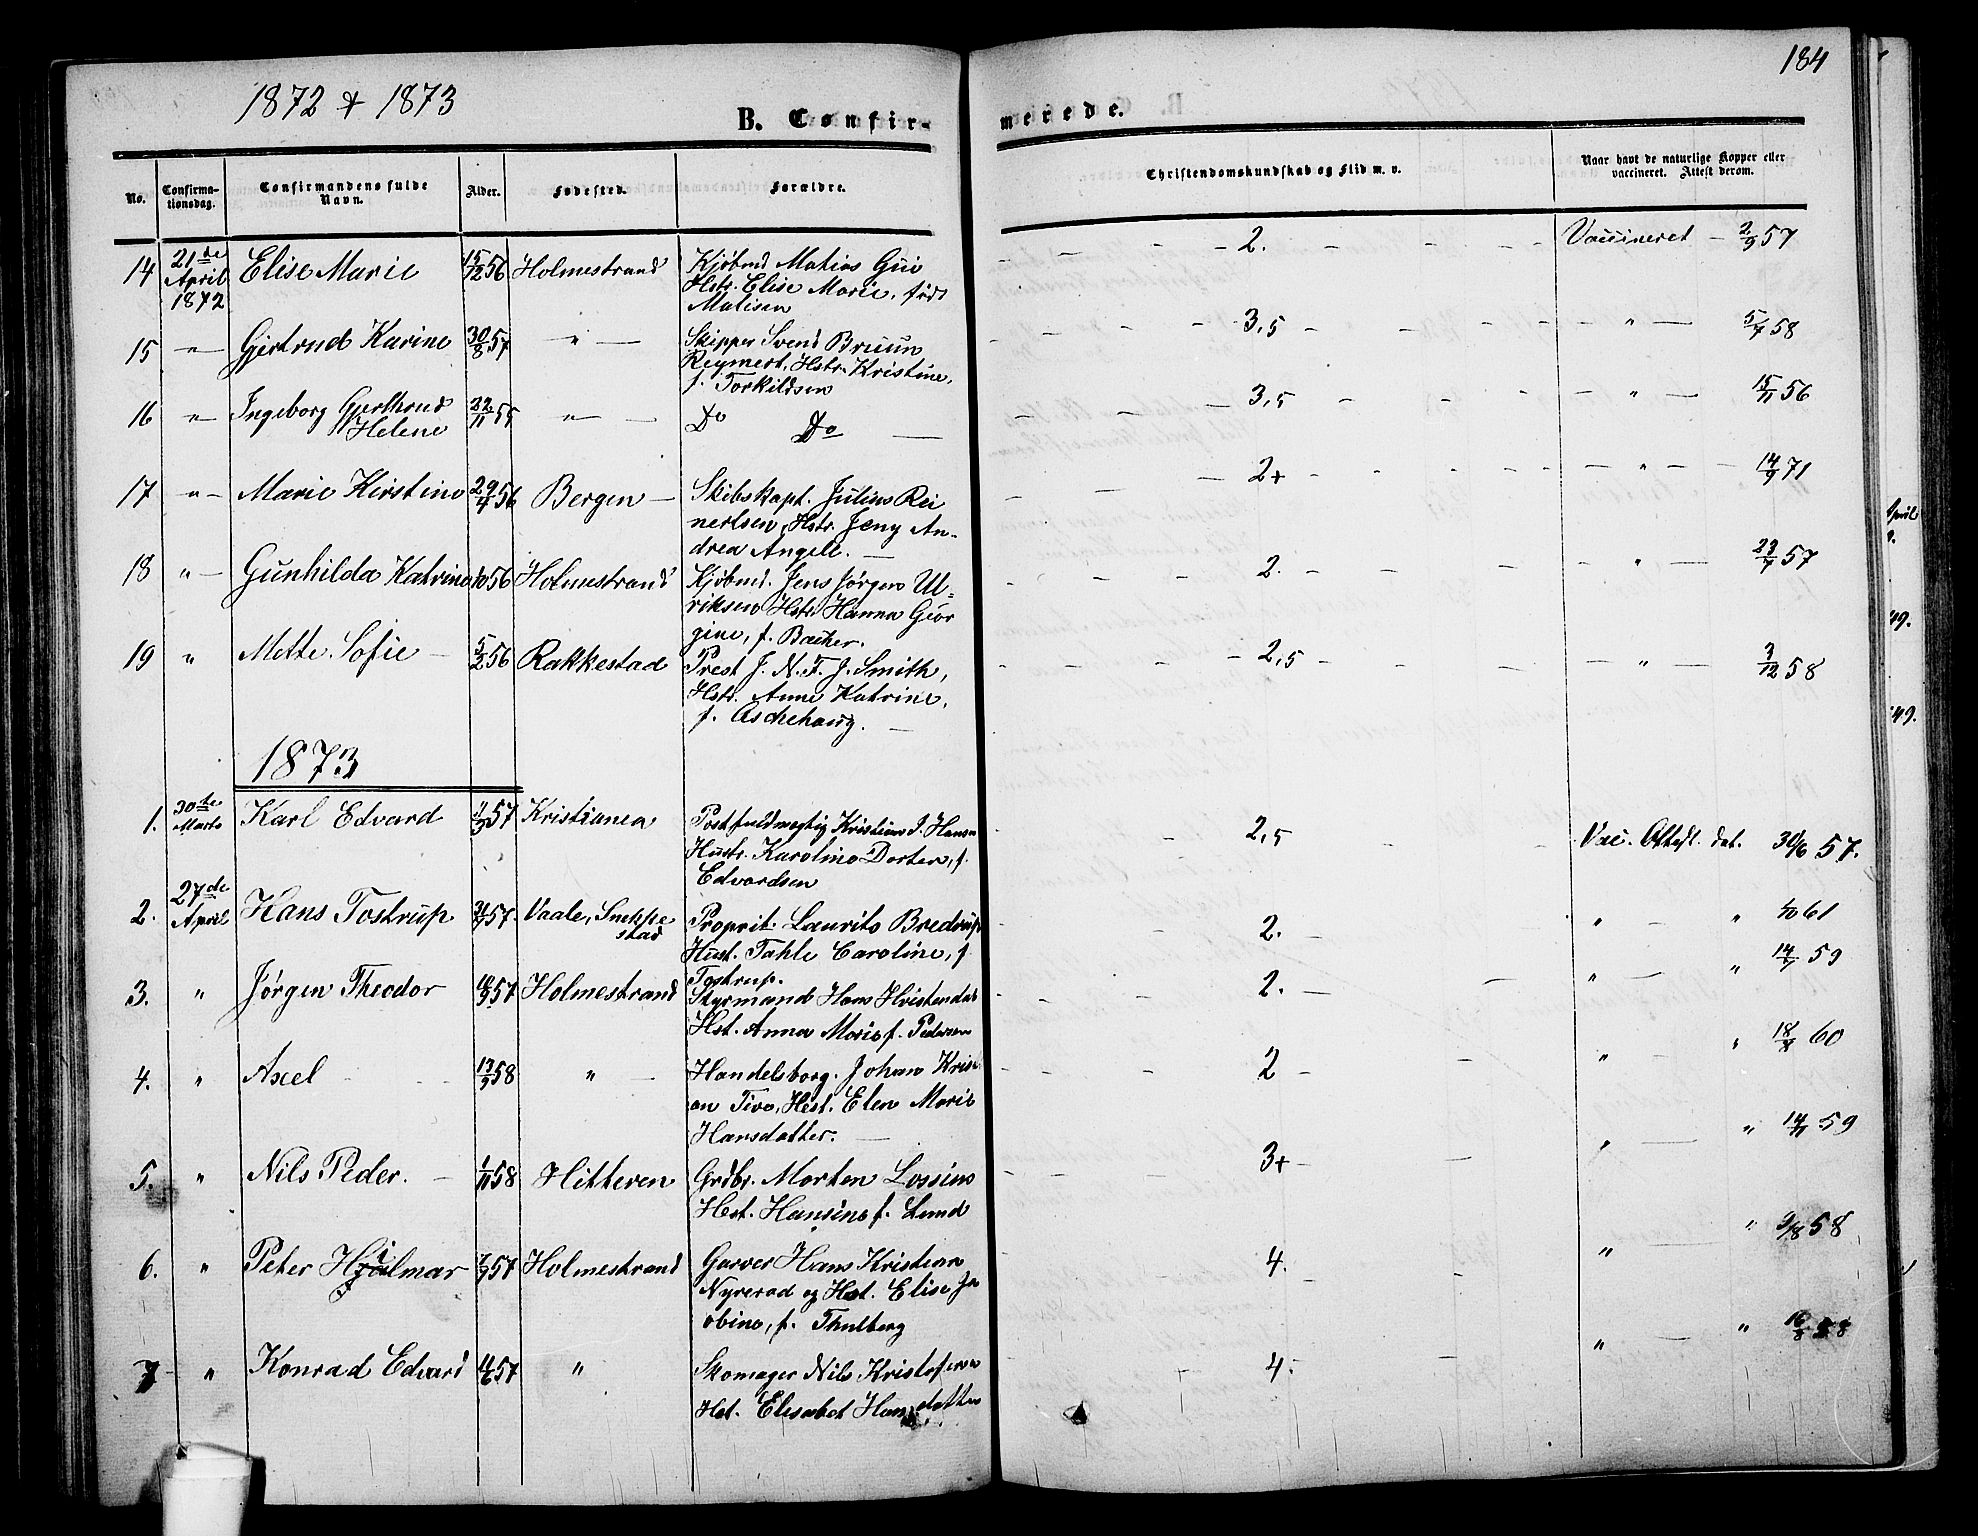 1872 & 1873
184
B. Confir-
merede.
No.
Confirma-
tionsdag.
Confirmandens fulde
Navn.
Alder.
Fødested.
Forældre.
Christendomskundskab og Flid m. v.
Naar havt de naturlige Kopper eller
vaccineret. Attest derom.
14 21de April 1872 Elise Marie 15/12 56 Holmestrand Kjøbmd Matias Gui
Hstr. Elise Marie, født
Matisen
2. Vaccineret — 2/9 57
15 " Gjertrud Karine 30/8 57 " Skipper Svend Bruun
Reymert, Hstr. Kristine,
f. Torkildsen
3,5 " 5/7 58
16 " Ingeborg Gjerthrud
Helene 22/11 55 " Do Do
3,5 " 15/11 56
17 " Marie Kirstine 29/4 56 Bergen Skibskapt. Julius Rei
nertsen, Hstr. Jeny An-
drea Angell.
2+ " 14/9 71
18 " Gunhilda Katrine 56 Holmestrand Kjøbmd. Jens Jørgen Ul-
riksen Hstr. Hanna Geor
gine, f. Bacher.
2. " 23/7 57
19 " Mette Sofie 5/2 56 Rakkestad Prest J. N. F. J. Smith,
Hstr. Anne Katrine,
f. Aschehaug.
2,5 " 3/12 58
1873
1. 30te Marts Karl Edvard 57 Kristiania Postfuldmægtig Kristian J. Hansen
Hustr. Karoline Dortea, f.
Edvardsen
2,5 Vac. Attest. dat. 30/6 57.
2. 27de April Hans Tostrup 57. Vaale, Sneppe
stad Proprit. Laurits Bredrup
Hust. Tahle Caroline, f.
Tostrup.
2. " " 61
3. " Jørgen Theodor 57 Holmestrand Styrmand Hans
Hst. Anna Marie f. Pedersen
2. " " 14/7 59
4. " Axel 58 " Handelsborg. Johan Krist
an Tivo, Hst. Elen Marie
Hansdatter.
2 " " 60
5. " Nils Peder. 1/11 58 Hitteren Grdbr. Morten Lossius
Hst. Hansine f. Lund
3+ " " 14/11 59
6. " Peter Hjalmar 57 Holmestrand Garver Hans Kristian
Nyrerød og Hst. Elise Ja
obine, f. Thulberg
4. " " 58
7 " Konrad Edvard 57 " Skomager Nils Kristofersen
Hst. Elisabet Hansdatter
4. " " 16/8 58